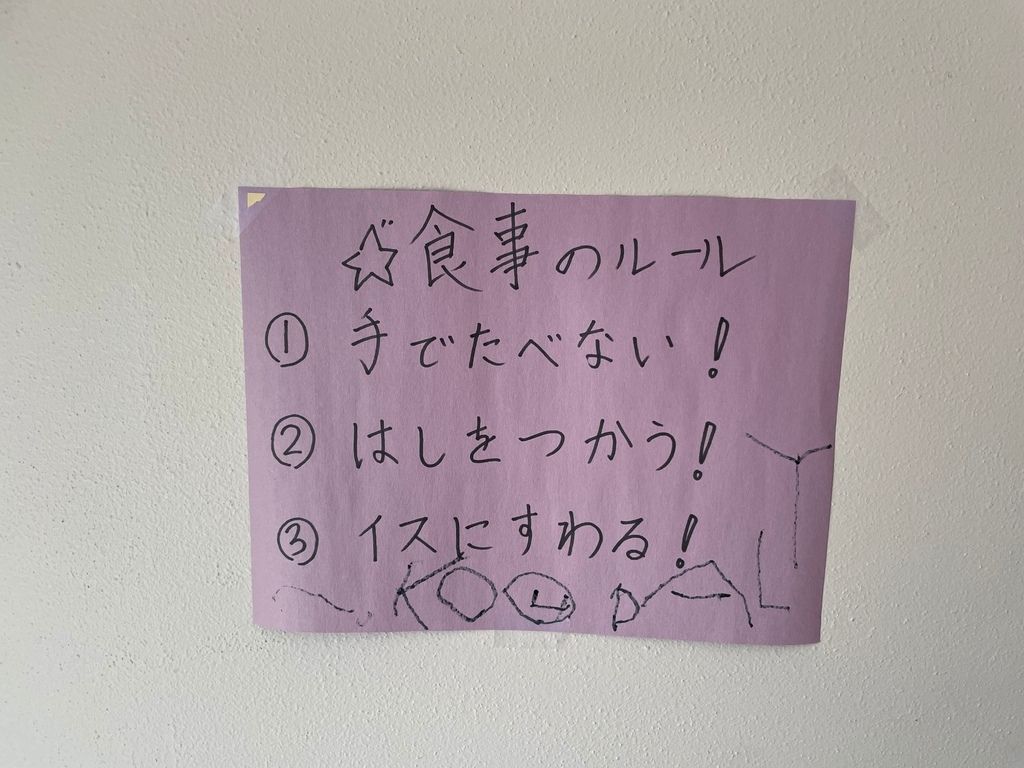 ☆食事のルール
① 手でたべない!
② はしをつかう!
③ イスにすわる!